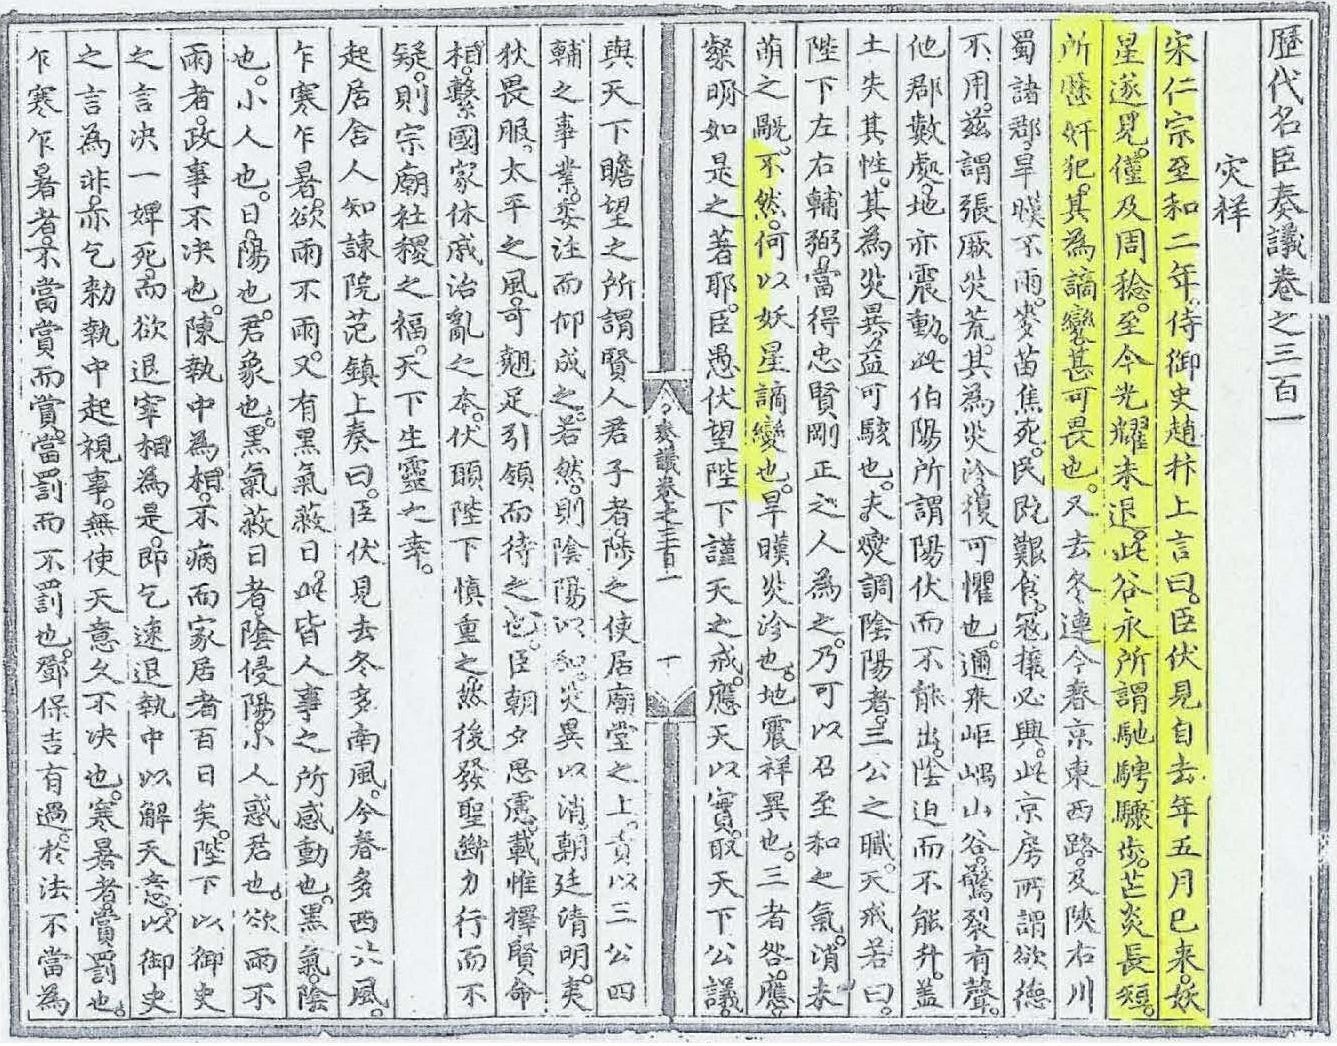 歷代名臣奏議卷之三百一
災祥
宋仁宗至和二年侍御史趙抃上言曰臣伏見自去年五月已來妖
星遂見僅及周稔至今光耀未退此谷永所謂馳騁驟步芒炎長短
所歷奸犯其為謫變甚可畏也又去冬連今春京東西路及陝右川
蜀諸郡旱暵不雨麥苗焦死民既艱食寇攘必興此京房所謂欲德
不用茲謂張厥災荒其為災沴復可懼也邇來岠嵎山谷驚裂有聲
他郡數處地亦震動此伯陽所謂陽伏而不能出陰迫而不能升蓋
土失其性其為災異益可駭也夫燮調陰陽者三公之職天戒若曰
陛下左右輔弼當得忠賢剛正之人為之乃可以召至和之氣消未
萌之戲不然何以妖星謫變也旱暵災沴也地震祥異也三者咎應
粲明如是之著耶臣愚伏望陛下謹天之戒應天以實取天下公議
奏議卷之三百一
與天下瞻望之所謂賢人君子者陟之使居廟堂之上責以三公四
輔之事業委注而仰成之若然則陰陽以和災異以消朝廷清明夷
狄畏服太平之風可翹足引領而待之也臣朝夕思慮載惟擇賢命
相繫國家休戚治亂之本伏願陛下慎重之然後發聖斷力行而不
疑則宗廟社稷之福天下生靈之幸
起居舍人知諫院范鎮上奏曰臣伏見去冬多南風今春多西北風
乍寒乍暑欲雨不雨又有黑氣蔽日此皆人事之所感動也黑氣陰
也小人也日陽也君象也黑氣蔽日者陰侵陽小人惑君也欲雨不
雨者政事不決也陳執中為相不病而家居者百日矣陛下以御史
之言決一婢死而欲退宰相為是即乞速退執中以解天意以御史
之言為非亦乞勑執中起視事無使天意久不決也寒暑者賞罰也
乍寒乍暑者不當賞而賞當罰而不罰也鄧保吉有過於法不當為